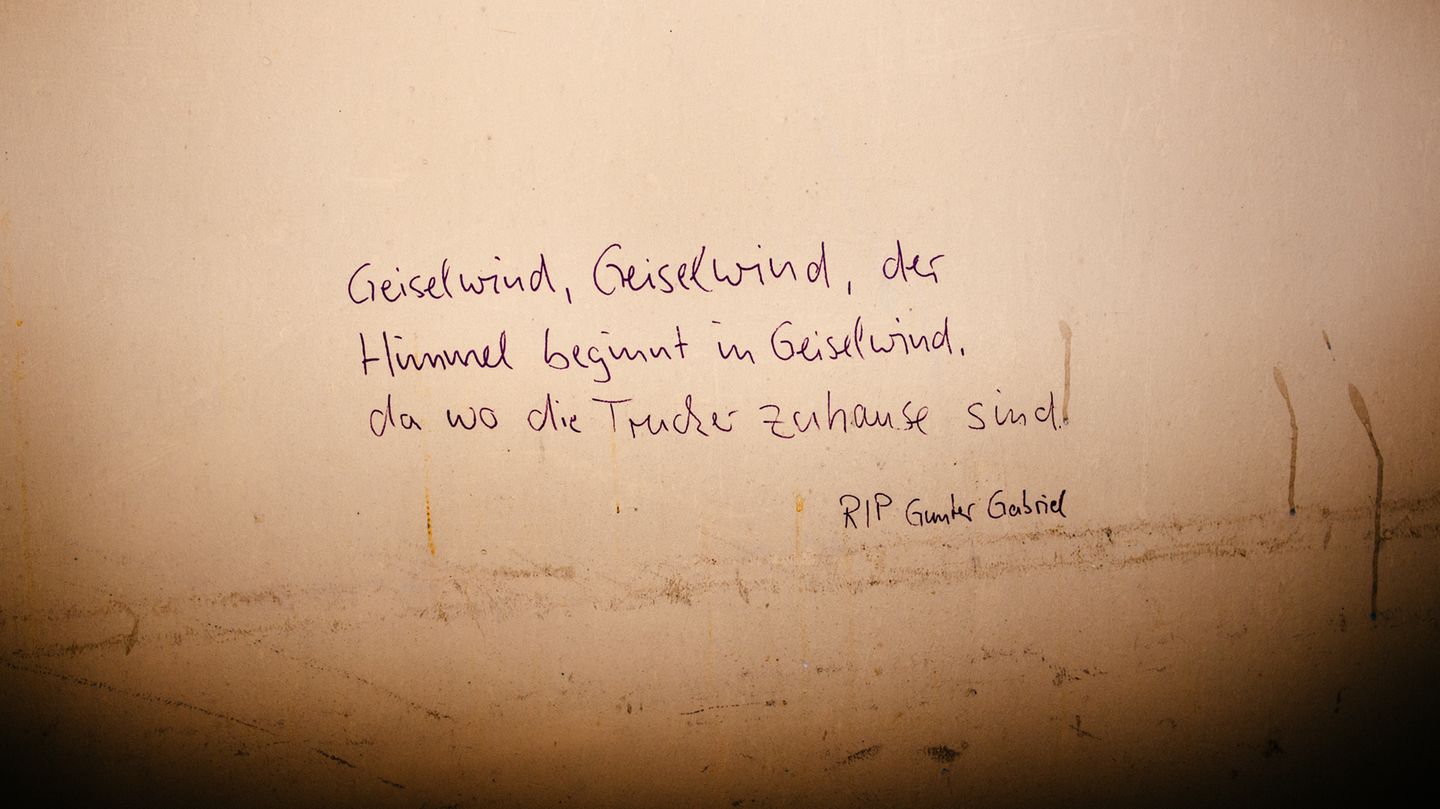 Geiselwind, Geiselwind, der
Himmel beginnt in Geiselwind,
da wo die Trucker zuhause sind.
RIP Gunter Gabriel